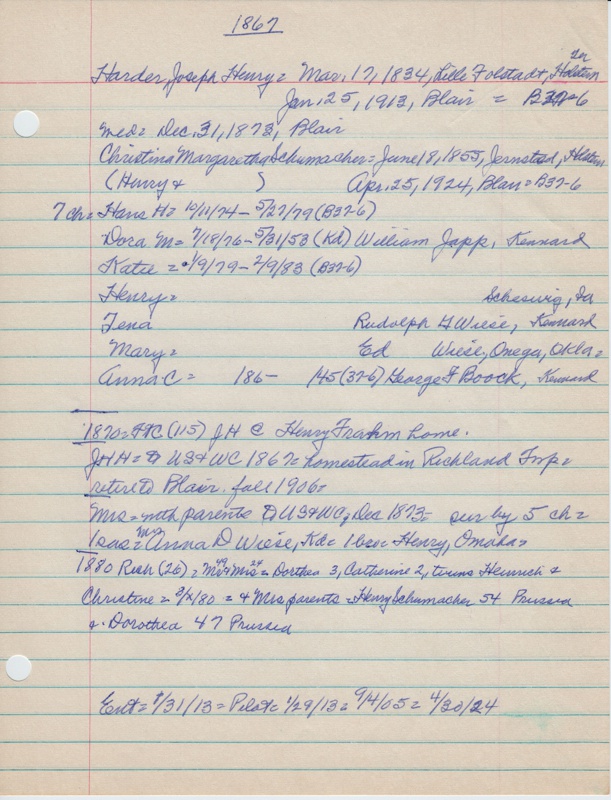 1867
Harder, Joseph Henry = Mar. 17, 1834, Lille Folstadt, Holstein
Jan. 25, 1913, Blair = B37-6
med = Dec. 31, 1873, Blair
Christina Margaretha Schumacher = June 18, 1855, Jernstad, Holstein
(Henry & ) Apr. 25, 1924, Blair = B37-6
7 ch = Hans H = 10/11/74 - 5/27/79 (B37-6)
Dora M = 7/18/76 - 5/31/53 (Kd) William Japp, Kennard
Katie = 1/9/79 - 2/9/83 (B37-6)
Henry = Scheswig, Ia
Tena Rudolph G Wiese, Kennard
Mary = Ed Wiese, Omega, Okla =
Anna C = 186- 145 (37-6) George F Boock, Kennard
1870 = (115) JH @ Henry Frahm home.
JHH = to US & WC 1867 = homestead in Richland Twp =
retired to Blair fall 1906 =
Mrs = with parents to US & WC, Dec 1873 = sur by 5 ch =
1 sis = Mrs Anna D Wiese, Kd = 1 bro = Henry, Omaha =
1880 Rich (26) = Mr 49 Mrs 24 = Dorthea 3, Catherine 2, twins Heinrich &
Christine = 2/2/80 = & Mrs parents = Henry Schumacher 54 Prussia
& Dorothea 47 Prussia
Ent = 1/31/13 = Pilot = 1/29/13 = 9/4/05 = 4/30/24